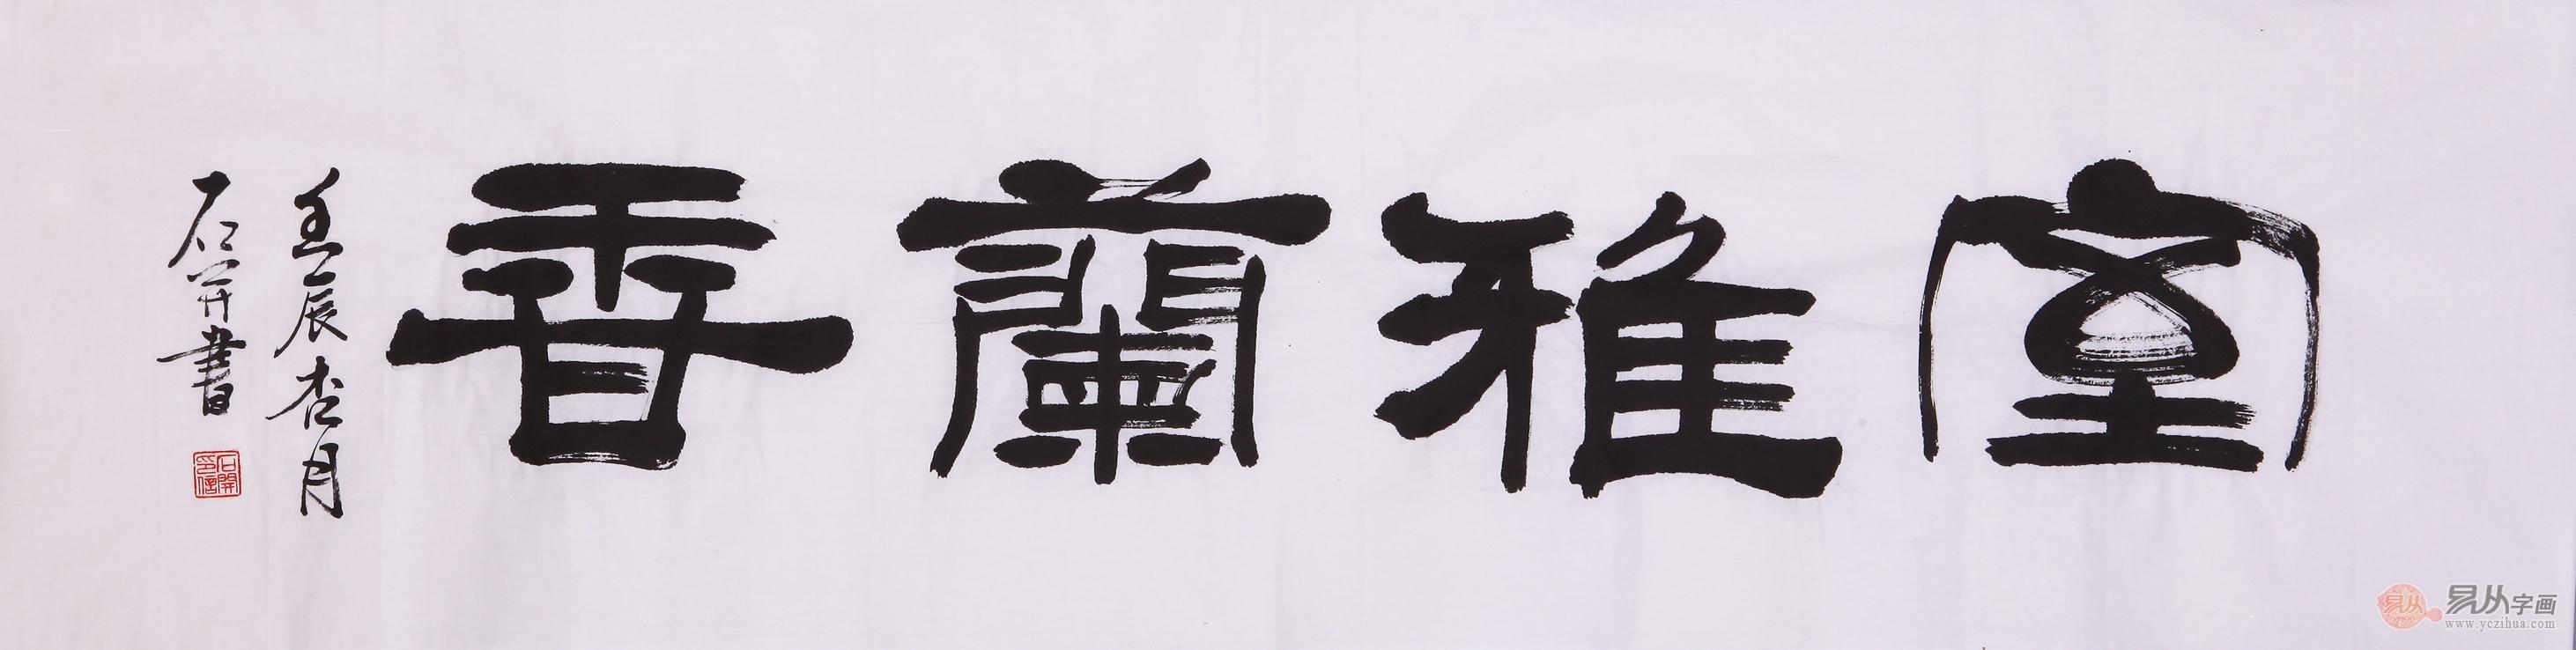 室雅蘭香
壬辰杏月
石开書
石開印信
易从
易从字画
www.yczihua.com